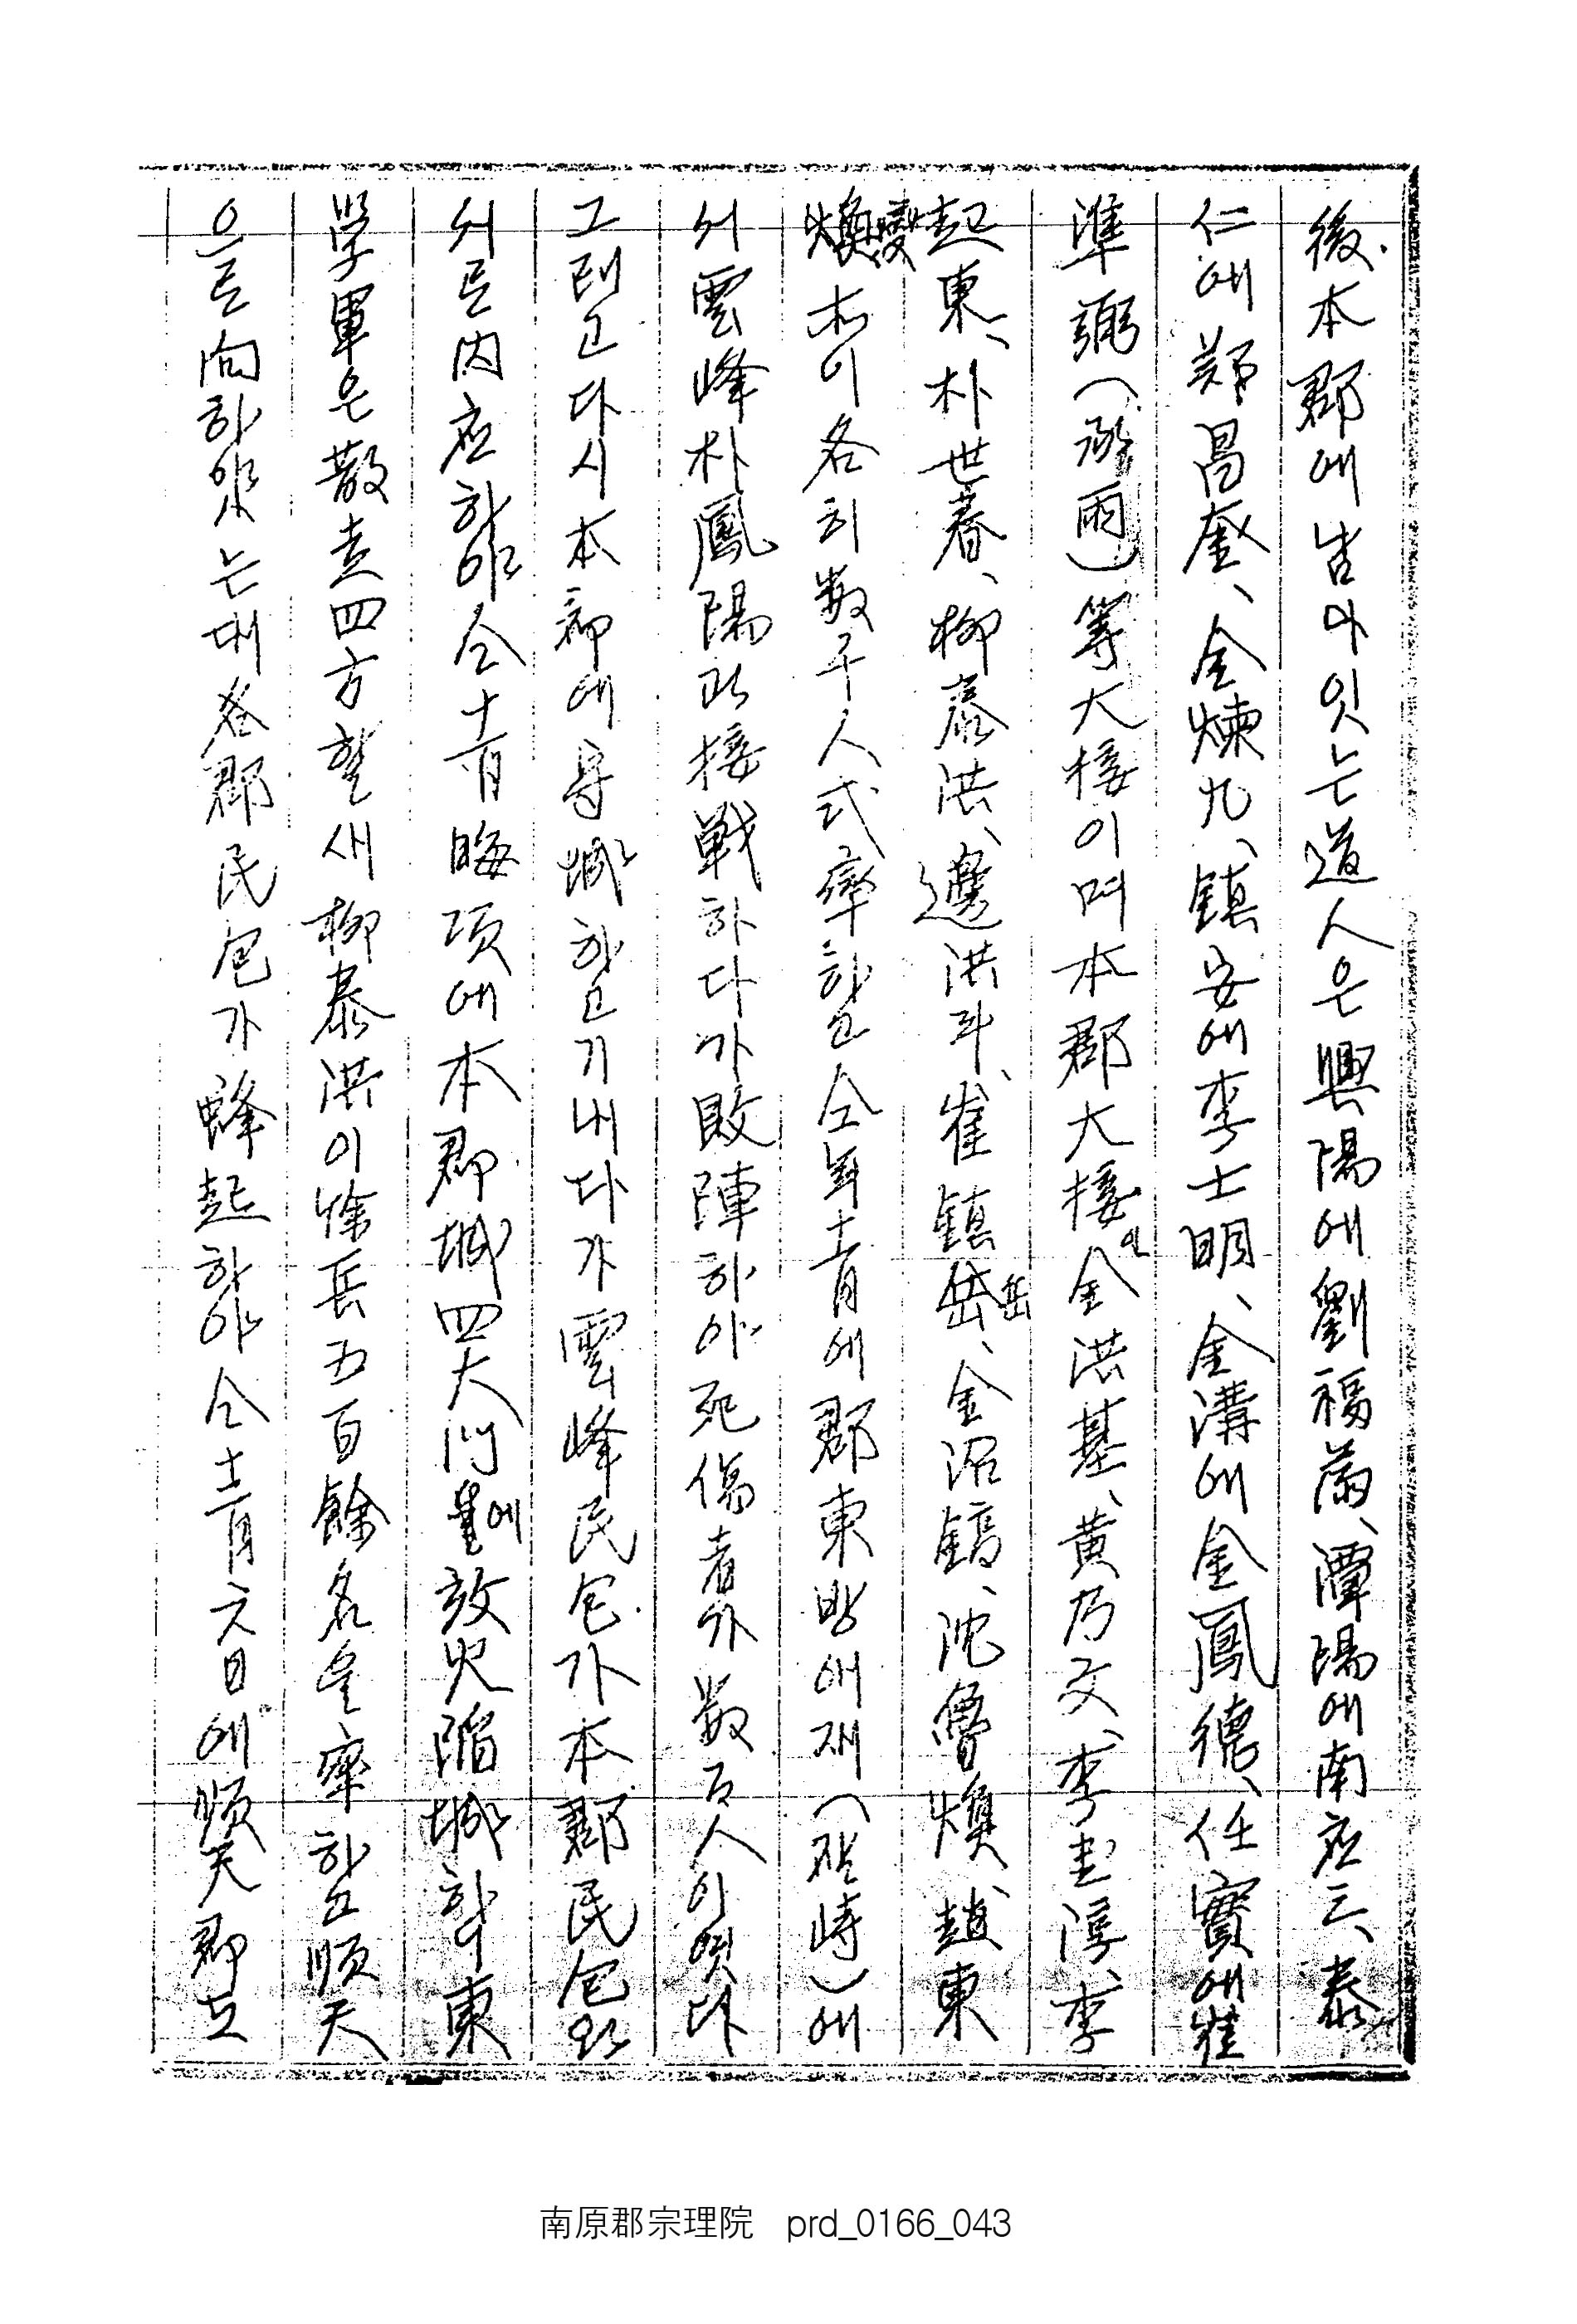 後本郡에 남아잇는 道人은 興陽에 劉福萬、潭陽에 南應三、泰
仁에 鄭昌奎、金煉九、鎭安에 李士明、金溝에 金鳳德、任實에 崔
準弼(承雨)等 大接이며 本郡大接에 金洪基、黃乃文、李圭淳、李
起東、朴世春、柳泰洪、邊洪斗、崔鎭岳、金沼鎬、沈魯煥、趙東
燮 等이 各히 數千人式 率하고 仝年 十一月에 郡東 방애재(砧峙)에
서 雲峰 朴鳳陽과 接戰하다가 敗陣하야 死傷者가 數百人이엿다
그리고 다시 本郡에 守城하고 지내다가 雲峰民包가 本郡民包와
서로 內應하야 仝十一月 晦頃에 本郡城 四大門에 放火陷城하야 東
學軍은 散走四方할새 柳泰洪이 餘兵 五百餘名을 率하고 順天
으로 向하얏는대 各郡民包가 蜂起하야 仝十二月 六日에 順天郡立
南原郡宗理院 prd_0166_043